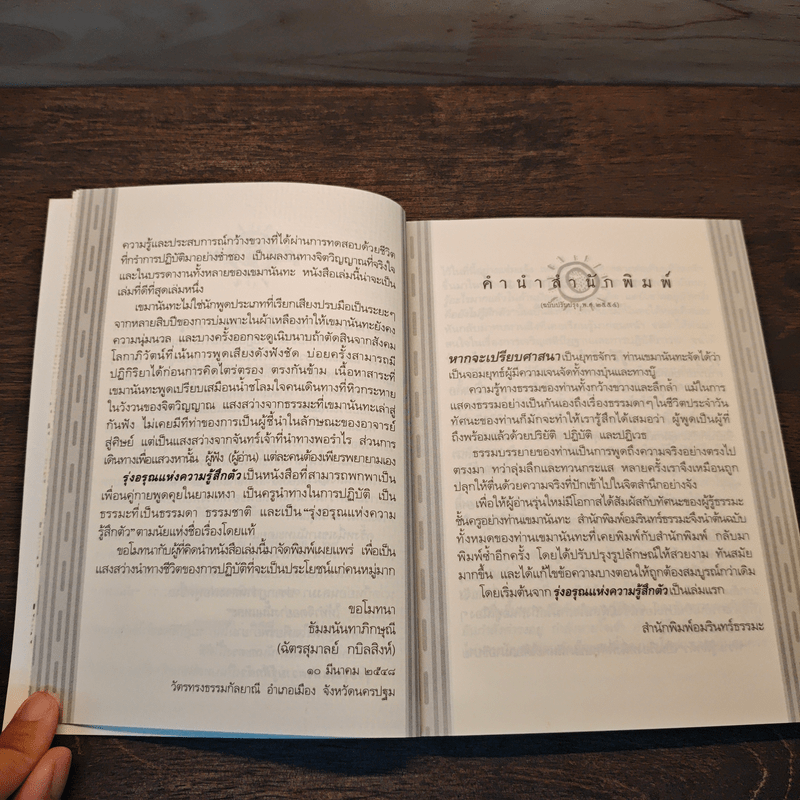 ความรู้และประสบการณ์กว้างขวางที่ได้ผ่านการทดสอบด้วยชีวิต
ที่กรำการปฏิบัติมาอย่างช่ำชอง เป็นผลงานทางจิตวิญญาณที่จริงใจ
และในบรรดางานทั้งหลายของเขมานันทะ หนังสือเล่มนี้น่าจะเป็น
เล่มที่ดีที่สุดเล่มหนึ่ง
เขมานันทะไม่ใช่นักพูดประเภทที่เรียกเสียงปรบมือเป็นระยะๆ
จากหลายสิบปีของการบ่มเพาะในผ้าเหลืองทำให้เขมานันทะยังคง
ความนุ่มนวล และบางครั้งออกจะดูเนิบนาบถ้าตัดสินจากสังคม
โลกาภิวัตน์ที่เน้นการพูดเสียงดังฟังชัด บ่อยครั้งสามารถมี
ปฏิกิริยาได้ก่อนการคิดไตร่ตรอง ตรงกันข้าม เนื้อหาสาระที่
เขมานันทะพูดเปรียบเสมือนน้ำชโลมใจคนเดินทางที่หิวกระหาย
ในวังวนของจิตวิญญาณ แสงสว่างจากธรรมะที่เขมานันทะเล่าสู่
กันฟัง ไม่เคยมีทีท่าของการเป็นผู้ชี้นำในลักษณะของอาจารย์
สู่ศิษย์ แต่เป็นแสงสว่างจากจันทร์เจ้าที่นำทางพอรำไร ส่วนการ
เดินทางเพื่อแสวงหานั้น ผู้ฟัง (ผู้อ่าน) แต่ละคนต้องเพียรพยายามเอง
รุ่งอรุณแห่งความรู้สึกตัวเป็นหนังสือที่สามารถพกพาเป็น
เพื่อนคู่กายพูดคุยในยามเหงา เป็นครูนำทางในการปฏิบัติ เป็น
ธรรมะที่เป็นธรรมดา ธรรมชาติ และเป็น “รุ่งอรุณแห่งความ
รู้สึกตัว” ตามนัยแห่งชื่อเรื่องโดยแท้
ขอโมทนากับผู้ที่คิดนำหนังสือเล่มนี้มาจัดพิมพ์เผยแพร่ เพื่อเป็น
แสงสว่างนำทางชีวิตของการปฏิบัติที่จะเป็นประโยชน์แก่คนหมู่มาก
ขอโมทนา
ธัมมนันทาภิกษุณี
(ฉัตรสุมาลย์ กบิลสิงห์)
๑๐ มีนาคม ๒๕๔๘
วัตรทรงธรรมกัลยาณี อำเภอเมือง จังหวัดนครปฐม
คำนำสำนักพิมพ์
(ฉบับปรับปรุง, พ.ศ. ๒๕๕๔)
หากจะเปรียบศาสนาเป็นยุทธจักร ท่านเขมานันทะจัดได้ว่า
เป็นจอมยุทธ์ผู้มีความเจนจัดทั้งทางบุ๋นและทางบู๊
ความรู้ทางธรรมของท่านทั้งกว้างขวางและลึกล้ำ แม้ในการ
แสดงธรรมอย่างเป็นกันเองถึงเรื่องธรรมดาๆ ในชีวิตประจำวัน
ทัศนะของท่านก็มักจะทำให้เรารู้สึกได้เสมอว่า ผู้พูดเป็นผู้ที่
ถึงพร้อมแล้วด้วยปริยัติ ปฏิบัติ และปฏิเวธ
ธรรมบรรยายของท่านเป็นการพูดถึงความจริงอย่างตรงไป
ตรงมา ทว่าลุ่มลึกและทวนกระแส หลายครั้งเราจึงเหมือนถูก
ปลุกให้ตื่นด้วยความจริงที่ปักเข้าไปในจิตสำนึกอย่างจัง
เพื่อให้ผู้อ่านรุ่นใหม่มีโอกาสได้สัมผัสกับทัศนะของผู้รู้ธรรมะ
ชั้นครูอย่างท่านเขมานันทะ สำนักพิมพ์อมรินทร์ธรรมะจึงนำต้นฉบับ
ทั้งหมดของท่านเขมานันทะที่เคยพิมพ์กับสำนักพิมพ์ กลับมา
พิมพ์ซ้ำอีกครั้ง โดยได้ปรับปรุงรูปลักษณ์ให้สวยงาม ทันสมัย
มากขึ้น และได้แก้ไขข้อความบางตอนให้ถูกต้องสมบูรณ์กว่าเดิม
โดยเริ่มต้นจาก รุ่งอรุณแห่งความรู้สึกตัวเป็นเล่มแรก
สำนักพิมพ์อมรินทร์ธรรมะ